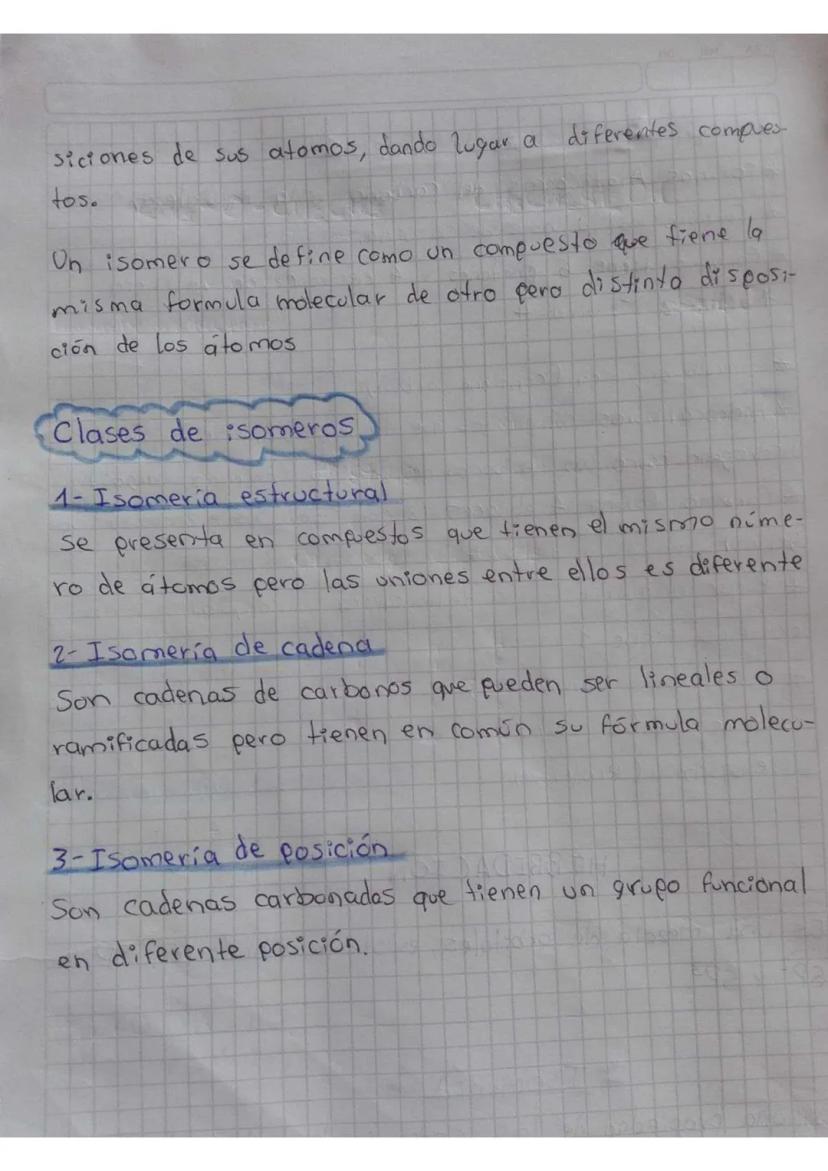 siciones de sus atomos, dando lugar a diferentes compues-
tos.
Un isomero se define como un compuesto que tiene la
misma formula molecular de otro pero distinta disposi-
ción de los átomos
Clases de isomeros
1- Isomeria estructural
se presenta en compuestos que tienen el mismo núme-
ro de átomos pero las uniones entre ellos es diferente
2- Isomería de cadena
Son cadenas de carbonos que pueden ser lineales o
ramificadas pero tienen en común su fórmula molecu-
lar.
3- Isomería de posición
Son cadenas carbonadas que tienen un grupo funcional
en diferente posición.